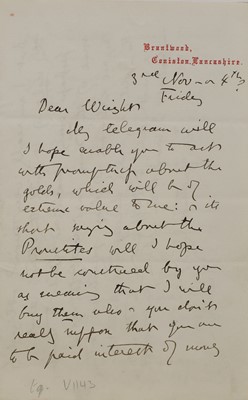 Brentwood,
Coniston, Lancashire.
3rd Nov – or 4th?
Friday
Dear Wright
My telegram will
I hope enable you to act
with promptness about the
golds, which will be of
extreme value to me: or its
short saying about the
Proustites will I hope
not be construed by you
as meaning that I will
buy them who – you don't
really suppose that you are
to be paid interest of money